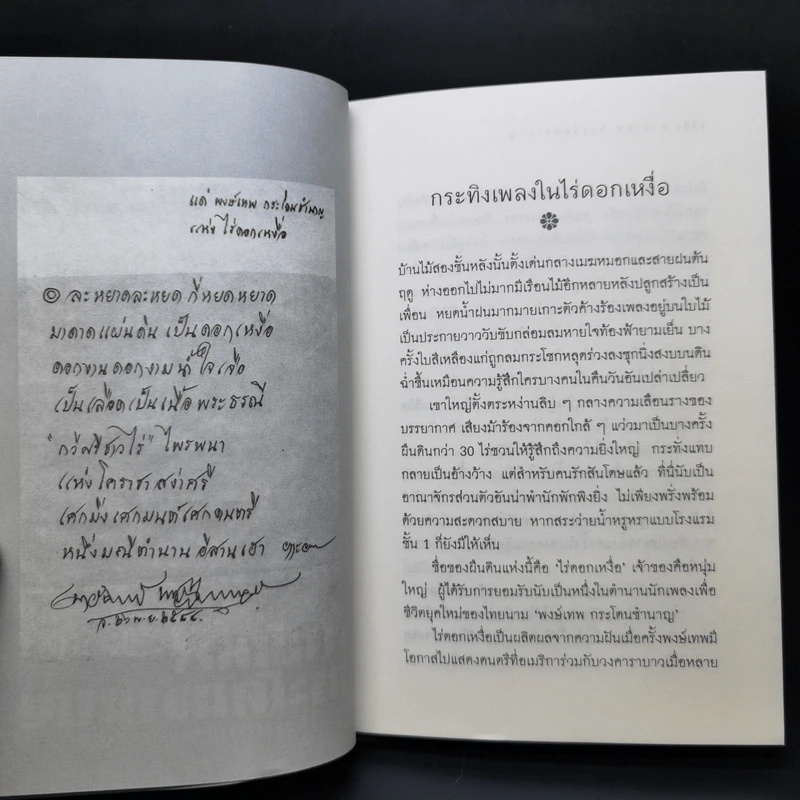 แด่ พงษ์เทพ กระโดนชำนาญ
แห่ง ไร่ดอกเหงื่อ
๏ ละหยาดละหยด กี่หยดหยาด
มาดาดแผ่นดิน เป็นดอกเหงื่อ
ดอกงานดอกงาม น้ำใจเจือ
เป็นเลือดเป็นเนื้อพระธรณี
"กวีศรีชาวไร่" ไพรพนา
แห่งโคราชาสง่าศรี
เศกมิ่งเศกมนต์เศกดนตรี
หนึ่งมณีตำนาน อีสานเฮา
กระทิงเพลงในไร่ดอกเหงื่อ
บ้านไม้สองชั้นหลังนั้นตั้งเด่นกลางเมฆหมอกและสายฝนต้น
ฤดู ห่างออกไปไม่มากมีเรือนไม้อีกหลายหลังปลูกสร้างเป็น
เพื่อน หยดน้ำฝนมากมายเกาะตัวค้างร้องเพลงอยู่บนใบไม้
เป็นประกายวาววับขับกล่อมลมหายใจท้องฟ้ายามเย็น บาง
ครั้งใบสีเหลืองแก่ถูกลมกระโชกหลุดร่วงลงซุกนิ่งสงบบนดิน
ฉ่ำชื้นเหมือนความรู้สึกใครบางคนในคืนวันอันเปล่าเปลี่ยว
เขาใหญ่ตั้งตระหง่านลิบ ๆ กลางความเลือนรางของ
บรรยากาศ เสียงม้าร้องจากคอกใกล้ ๆ แว่วมาเป็นบางครั้ง
ผืนดินกว่า 30 ไร่ชวนให้รู้สึกถึงความยิ่งใหญ่ กระทั่งแทบ
กลายเป็นอ้างว้าง แต่สำหรับคนรักสันโดษแล้ว ที่นี่นับเป็น
อาณาจักรส่วนตัวอันน่าพำนักพักพิงยิ่ง ไม่เพียงพรั่งพร้อม
ด้วยความสะดวกสบาย หากสระว่ายน้ำหรูหราแบบโรงแรม
ชั้น 1 ก็ยังมีให้เห็น
ชื่อของผืนดินแห่งนี้คือ 'ไร่ดอกเหงื่อ' เจ้าของคือหนุ่ม
ใหญ่ ผู้ได้รับการยอมรับนับเป็นหนึ่งในตำนานนักเพลงเพื่อ
ชีวิตยุคใหม่ของไทยนาม 'พงษ์เทพ กระโดนชำนาญ'
ไร่ดอกเหงื่อเป็นผลิตผลจากความฝันเมื่อครั้งพงษ์เทพมี
โอกาสไปแสดงดนตรีที่อเมริการ่วมกับวงคาราบาวเมื่อหลาย